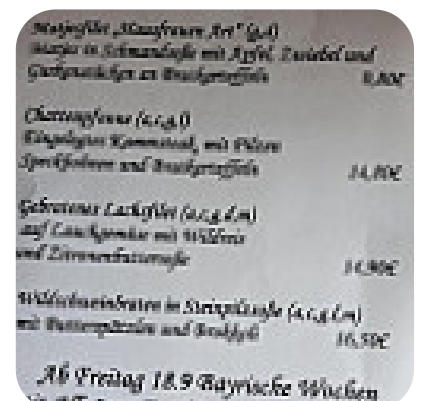 Matjesfilet „Hausfrauen Art“ (g,d)
Matjes in Schmandsoße mit Apfel, Zwiebel und
Gurkenstückchen an Bratkartoffeln
Chattenpfanne (a,c,g,l)
Eingelegtes Kammsteak, mit Pilzen
Speckbohnen und Bratkartoffeln 14,80€
Gebratenes Lachsfilet (a,c,g,d,m)
auf Lauchgemüse mit Wildreis
und Zitronenbuttersoße 14,90€
Wildschweinbraten in Steinpilzsoße (a,c,g,l,m)
mit Butterspätzlen und Brokkoli 16,50€
Ab Freitag 18.9 Bayrische Wochen